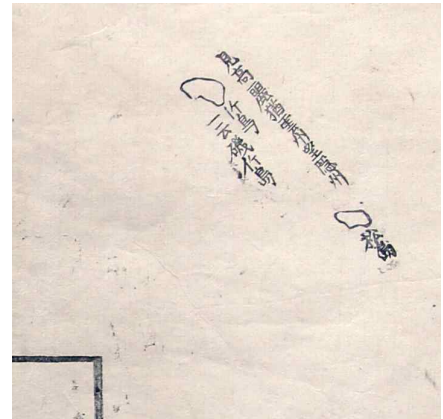 見高麗猶雲州望隱州
竹島
一云磯竹島
松島